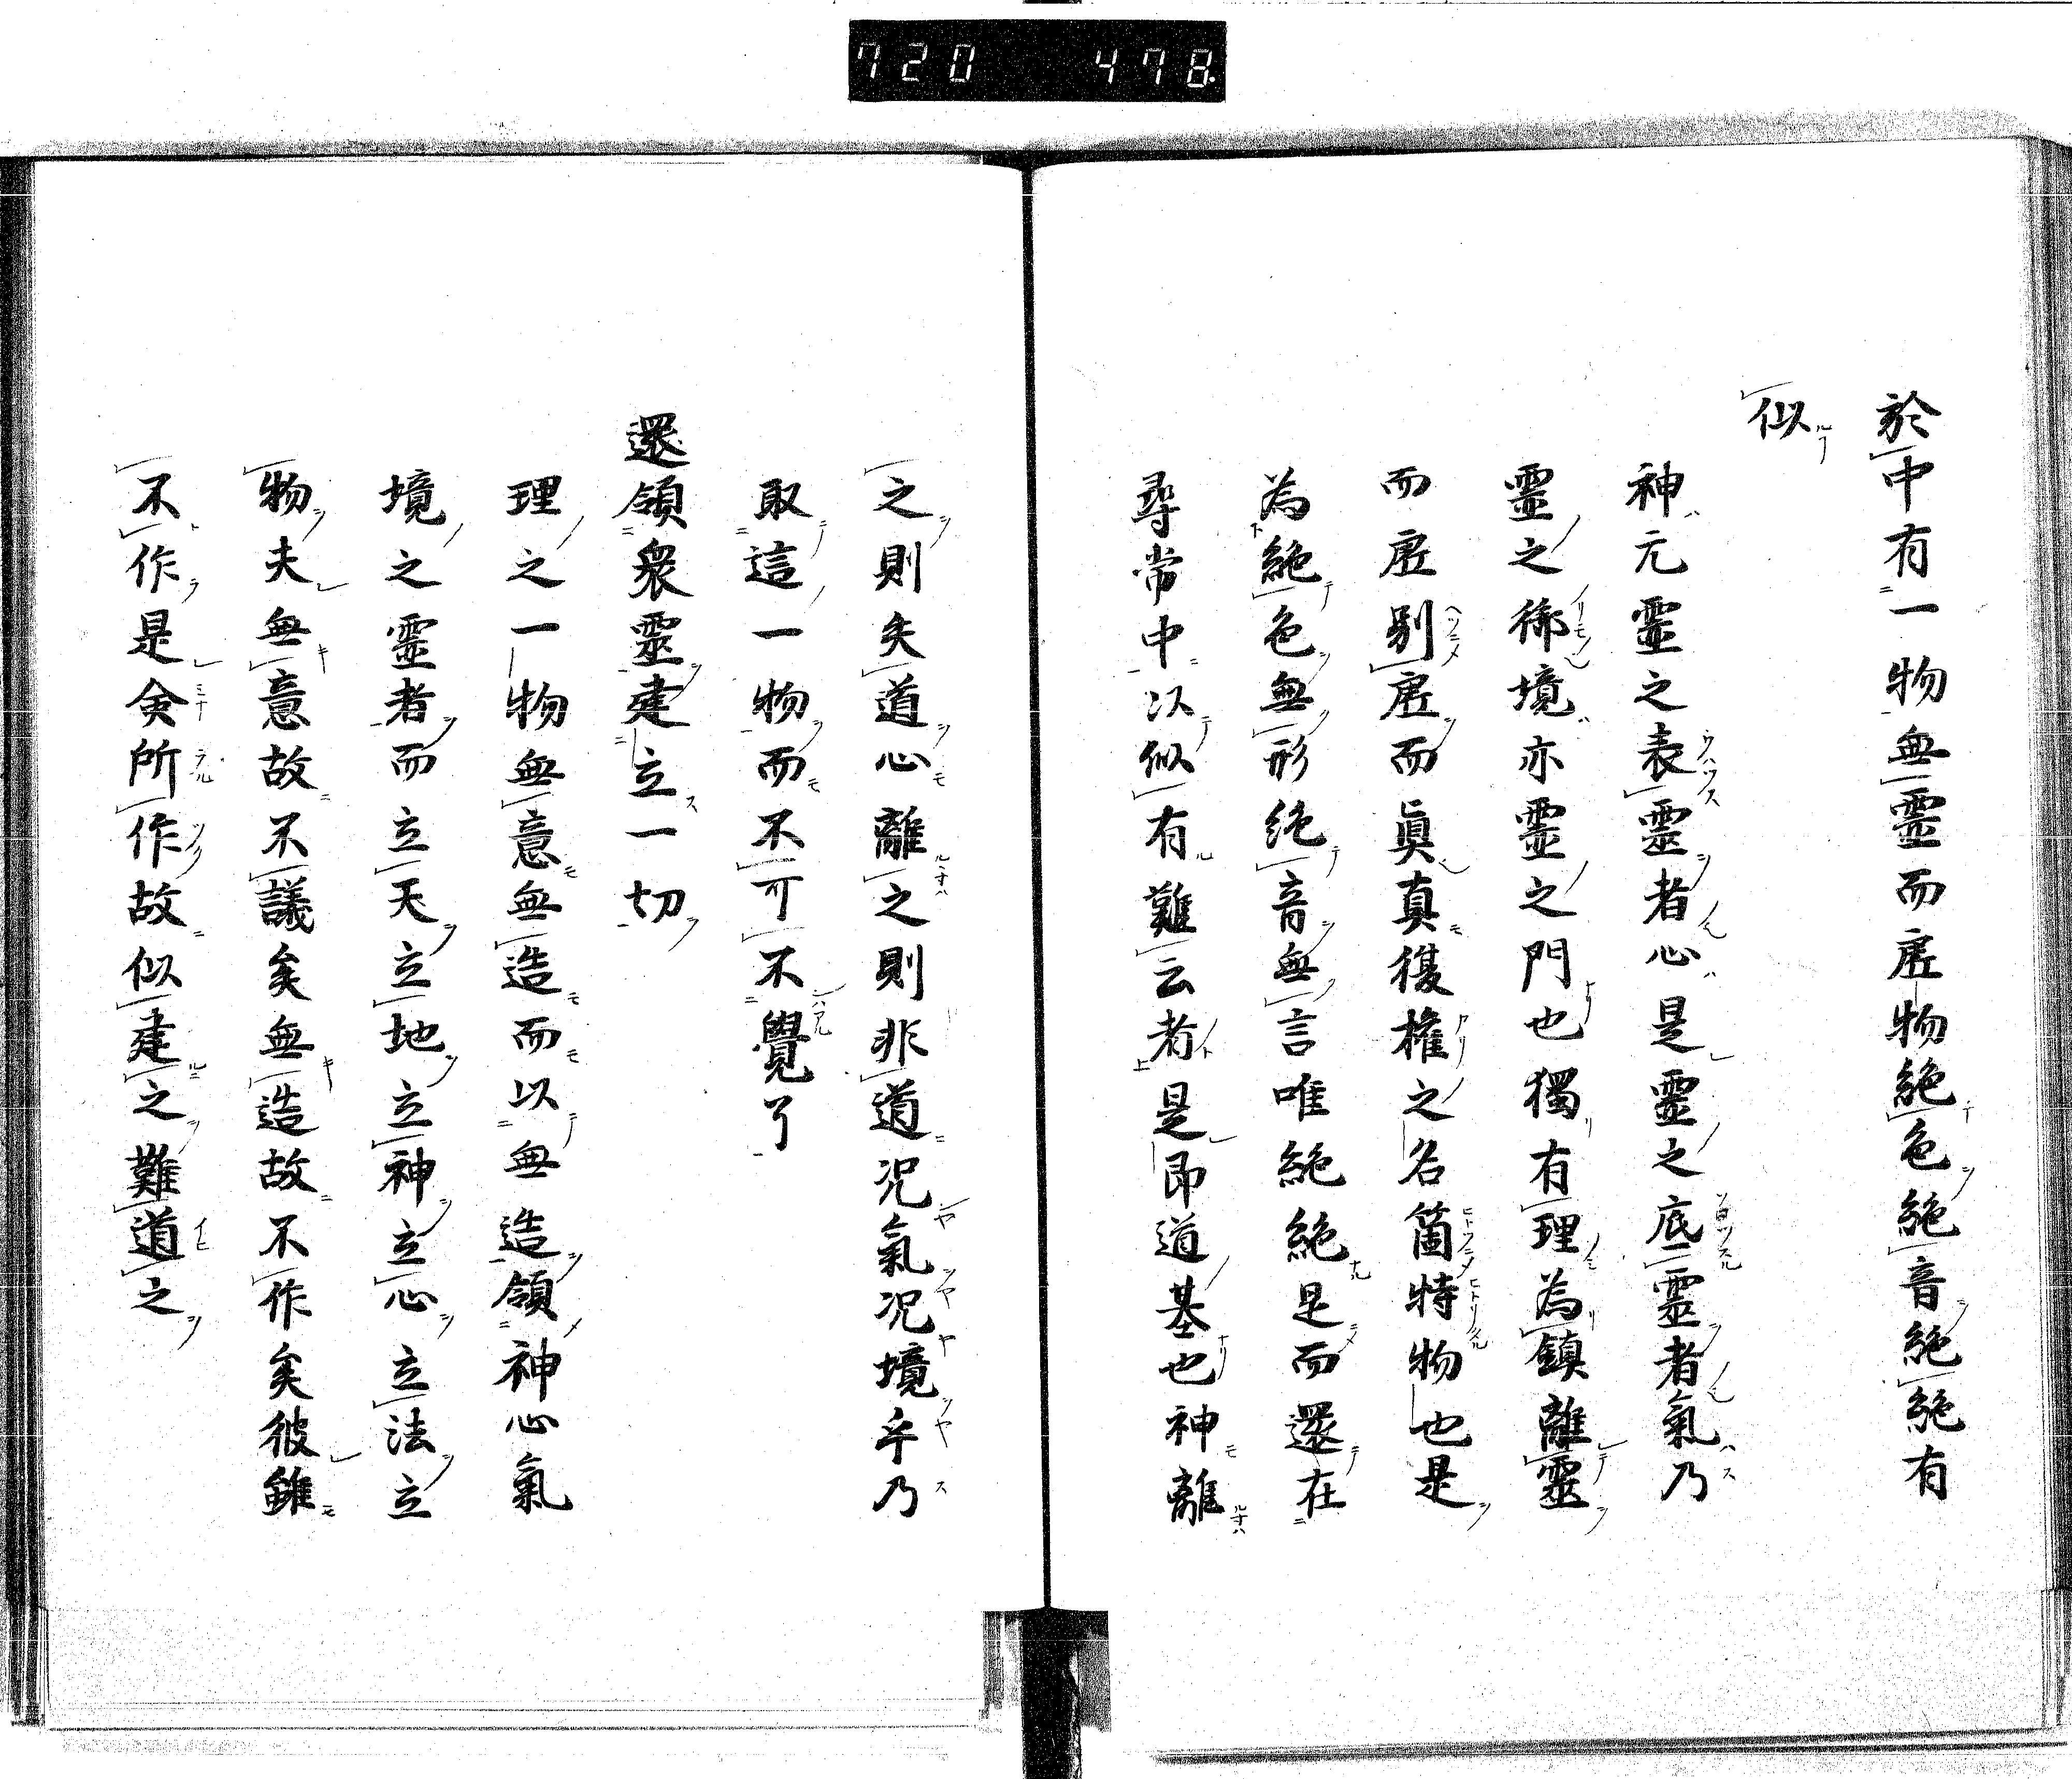 720 478
於中有一物無靈而虗物絶色絶音絶絶有
似
神元靈之表靈者心是靈之底靈者氣乃
靈之衛境亦靈之門也獨有理為鎮離靈
而虗別虗而眞真復權之名箇特物也是
為絶色無形絶音無言唯絶絶是而還在
尋常中以似有難云者是即道基也神離
之則矣道心離之則非道况氣况境乎乃
取這一物而不可不覺了
還領衆靈建立一切
理之一物無意無造而以無造領神心氣
境之靈者而立天立地立神立心立法立
物夫無意故不議矣無造故不作矣彼雖
不作是僉所作故似建之難道之